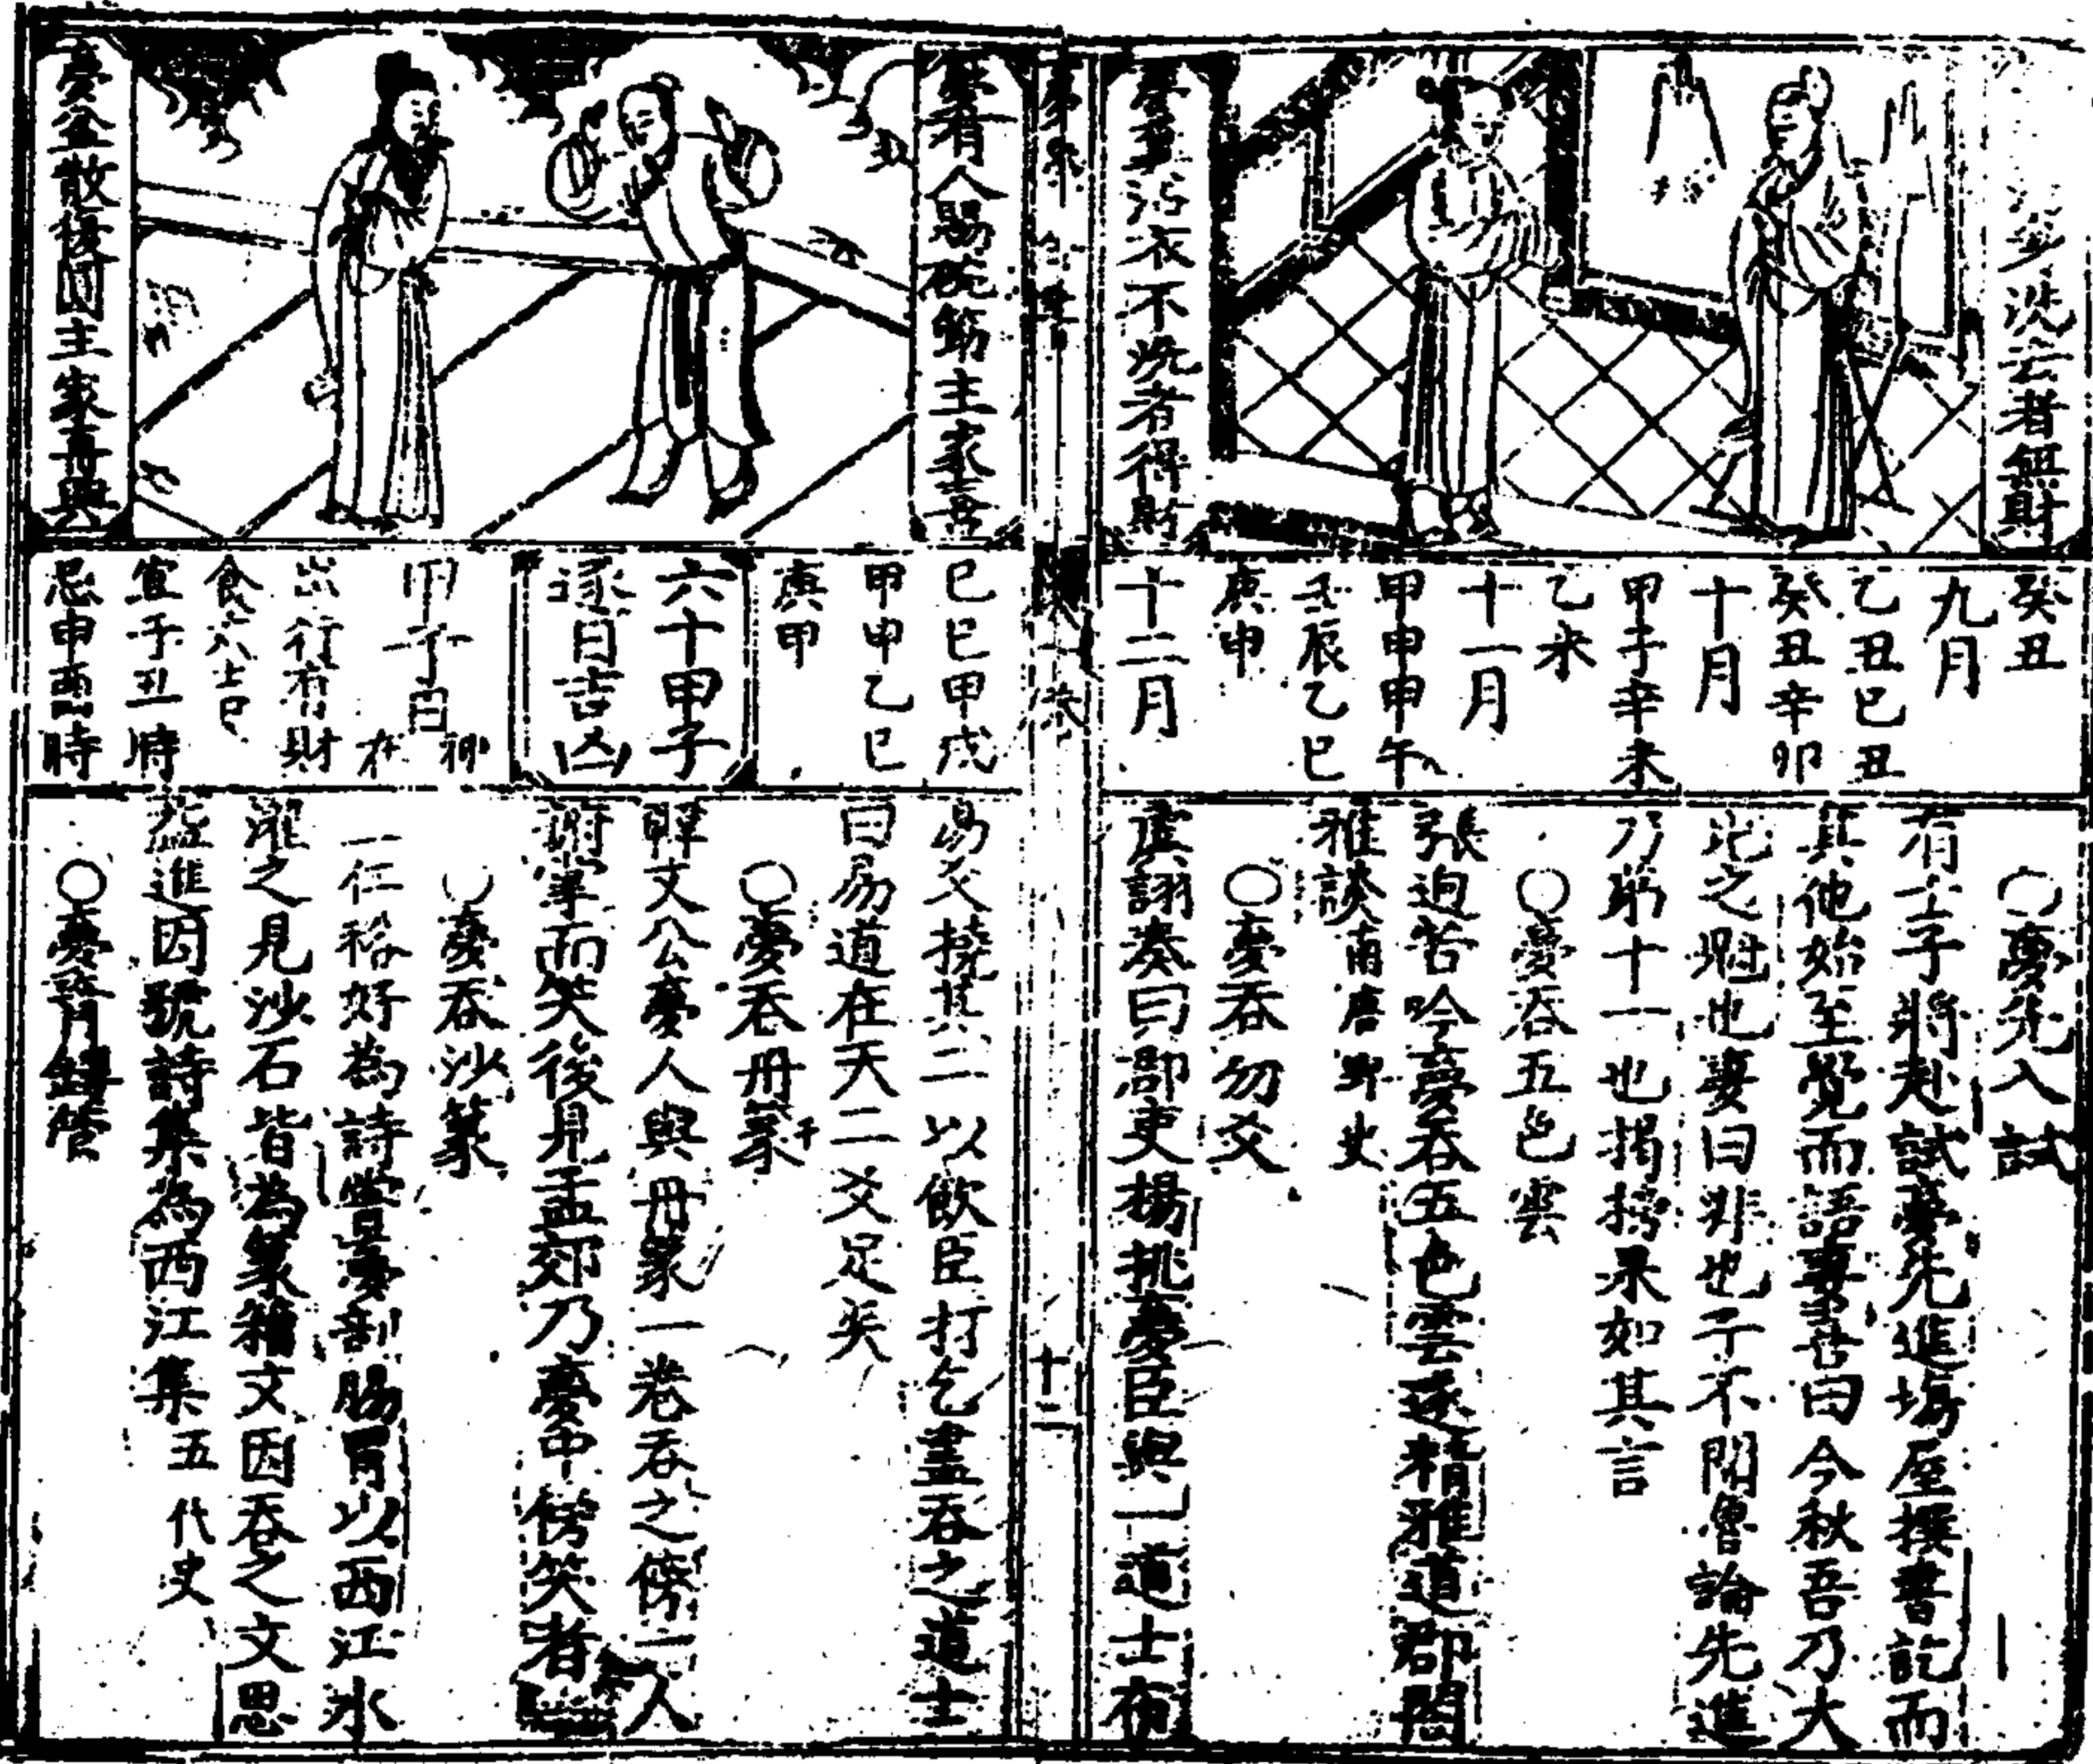 夢洗去者無財
夢事沾衣不洗者得財
癸丑
九月
乙丑巳丑
癸丑辛卯
十月
甲子辛未
乙未
十一月
甲申甲午
壬辰乙巳
庚申
十二月
○夢先入試
有士子將赴試夢先進場屋撰書訖而
其他始至覺而語妻喜曰今秋吾乃大
比之魁也妻曰非也子不聞魯論先進
乃第十一也揭榜果如其言
○夢吞五色雲
張迥苦吟夢吞五色雲遂精雅道郡閣
雅談南唐野史
○夢吞勿爻
虞翻奏曰郡吏楊挑夢臣與一道士布
十二
夢有人賜碗筯主家吉
夢盆散復圓主家再興
巳巳甲戌
甲申乙巳
庚甲
六十甲子
逐日吉凶
甲子日神在
出行有財
食
宜子丑時
忌申酉時
易爻撓其二以飲臣打乞盡吞之道士
曰易道在天二爻足矣
○夢吞丹篆
韓文公夢人與丹篆一卷吞之傍一人
拊掌而笑後見孟郊乃夢中傍笑者
○夢吞沙篆
仁裕好為詩嘗夢剖腸胃以西江水
濯之見沙石皆為篆籀文因吞之文思
益進因號詩集為西江集五代史